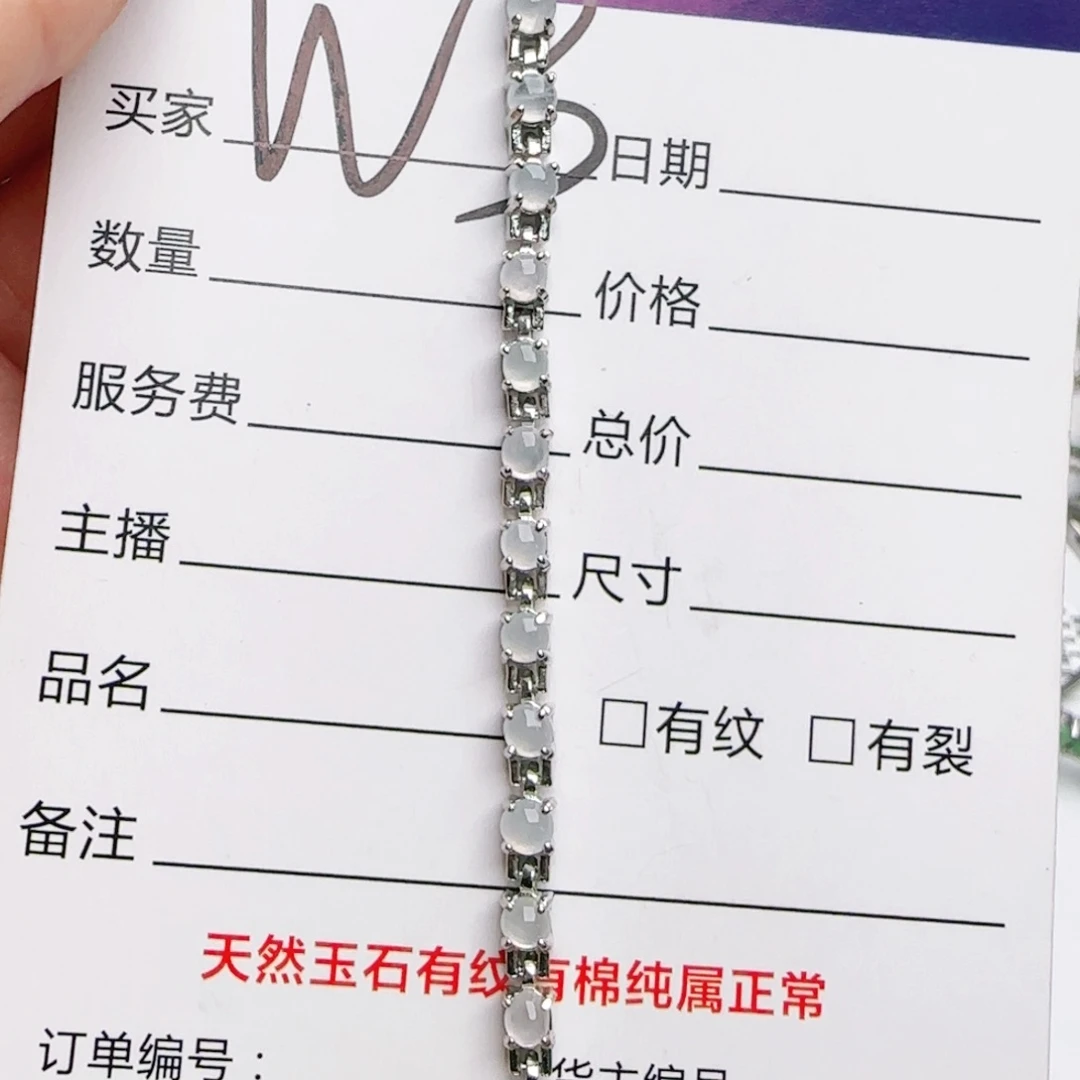 买家 W3 日期
数量 价格
服务费 总价
主播 尺寸
品名 □有纹 □有裂
备注
天然玉石有纹有棉纯属正常
订单编号： 货主编号